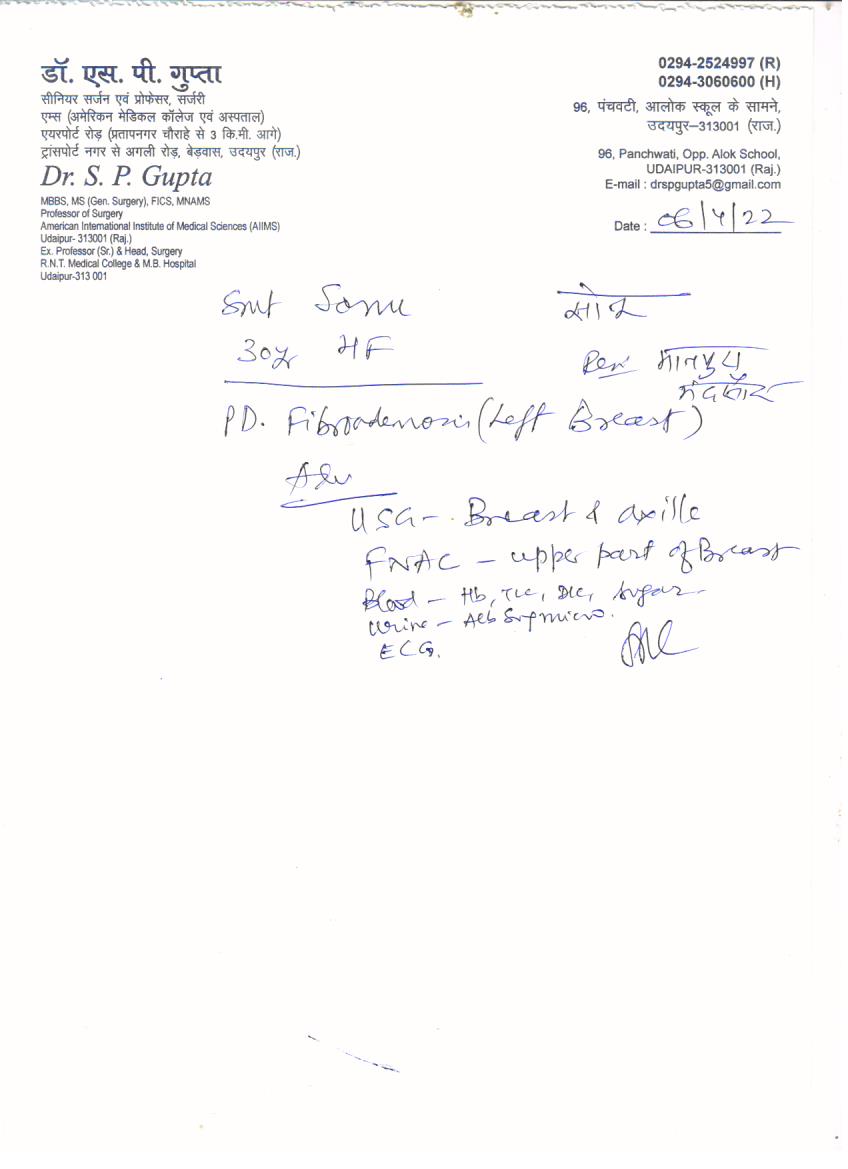 डॉ. एस. पी. गुप्ता
सीनियर सर्जन एवं प्रोफेसर, सर्जरी
एम्स (अमेरिकन मेडिकल कॉलेज एवं अस्पताल)
एयरपोर्ट रोड़ (प्रतापनगर चौराहे से 3 कि.मी. आगे)
ट्रांसपोर्ट नगर से अगली रोड़, बेड़वास, उदयपुर (राज.)
Dr. S. P. Gupta
MBBS, MS (Gen. Surgery), FICS, MNAMS
Professor of Surgery
American International Institute of Medical Sciences (AIIMS)
Udaipur- 313001 (Raj.)
Ex. Professor (Sr.) & Head, Surgery
R.N.T. Medical College & M.B. Hospital
Udaipur-313 001
0294-2524997 (R)
0294-3060600 (H)
96, पंचवटी, आलोक स्कूल के सामने,
उदयपुर–313001 (राज.)
96, Panchwati, Opp. Alok School,
UDAIPUR-313001 (Raj.)
E-mail : drspgupta5@gmail.com
Date : 06/4/22
Smt Sonu
30y HF
PD. Fibroadenosis (Left Breast)
Adv
USG - Breast & axille
FNAC - upper part of Breast
Blood - Hb, TLC, DLC, Sugar
Urine - Alb Sug micro.
ECG.